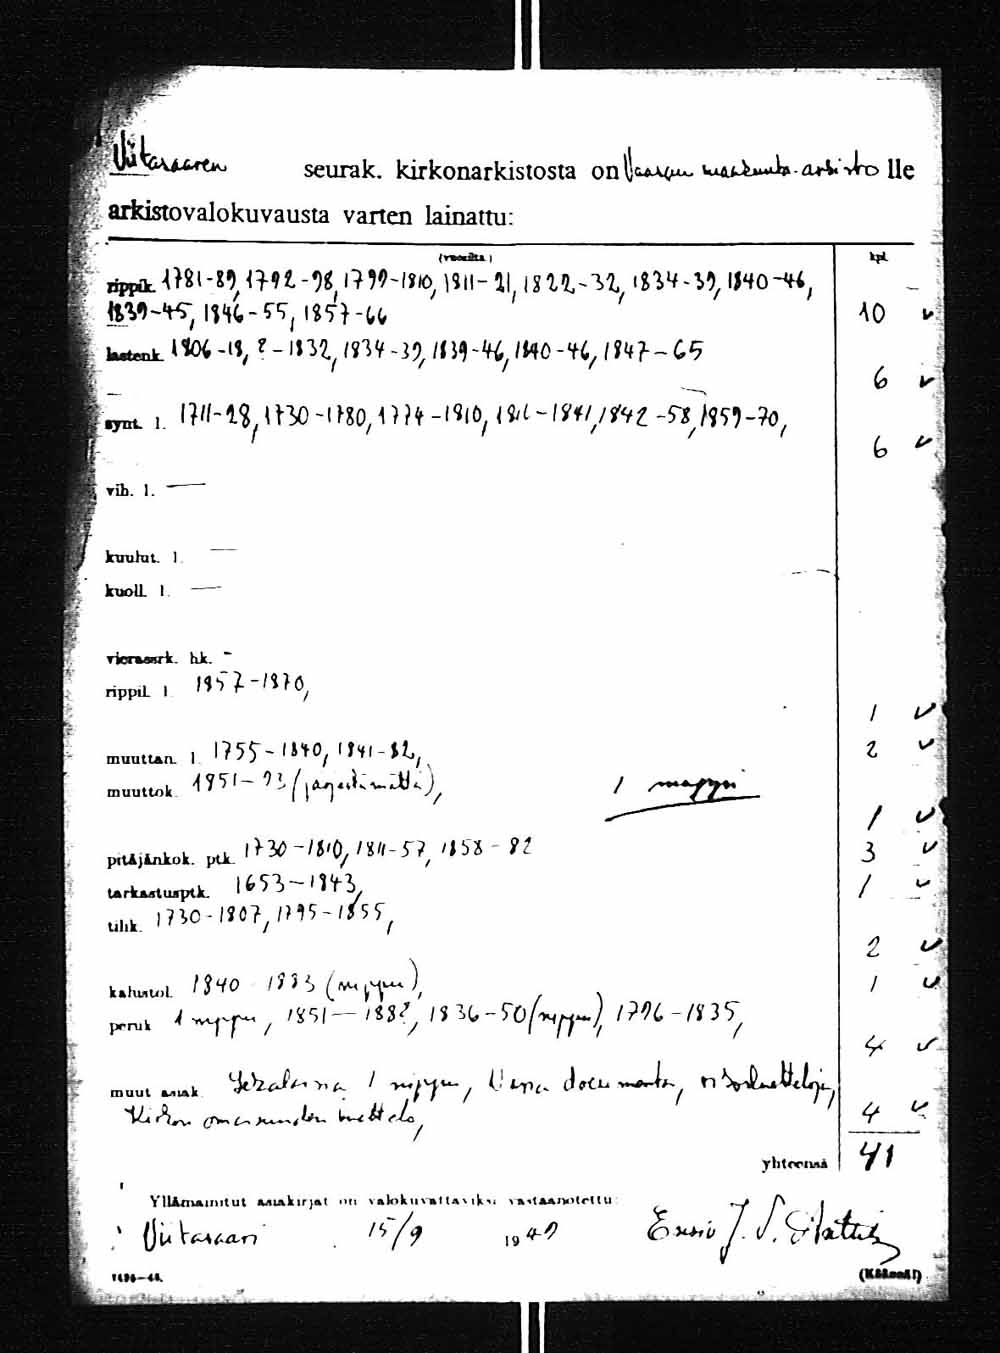 Viitasaaren seurak. kirkonarkistosta on Vaasan maakunta-arkisto lle
arkistovalokuvausta varten lainattu:
(vuosilta) kpl.
rippik. 1781-89, 1792-98, 1799-1810, 1811-21, 1822-32, 1834-39, 1840-46,
1839-45, 1846-55, 1857-66 10
lastenk. 1806-18, ?-1832, 1834-39, 1839-46, 1840-46, 1847-65
6
synt. l. 1711-28, 1730-1780, 1774-1810, 1811-1841, 1842-58, 1859-70,
6
vih. l. —
kuulut. l. —
kuoll. l. —
vierassrk. hk. -
rippil. l. 1857-1870,
1
muuttan. l. 1755-1840, 1841-82, 2
muuttok. 1851-93 (järjestämättä), 1 mappi
1
pitäjänkok. ptk. 1730-1810, 1811-57, 1858-82 3
tarkastusptk. 1653-1843, 1
tilik. 1730-1807, 1795-1855,
2
kalustol. 1840-1883 (nippu), 1
peruk. 1 nippu, 1851-1882, 1836-50 (nippu), 1796-1835,
4
muut asiak. Sekalaisia 1 nippu,
Kirkon omaisuuden luettelo, 4
yhteensä 41
Yllämainitut asiakirjat on valokuvattaviksi vastaanotettu:
Viitasaari 15/9 1949 Ensio J.
1496-48. (Käännä!)